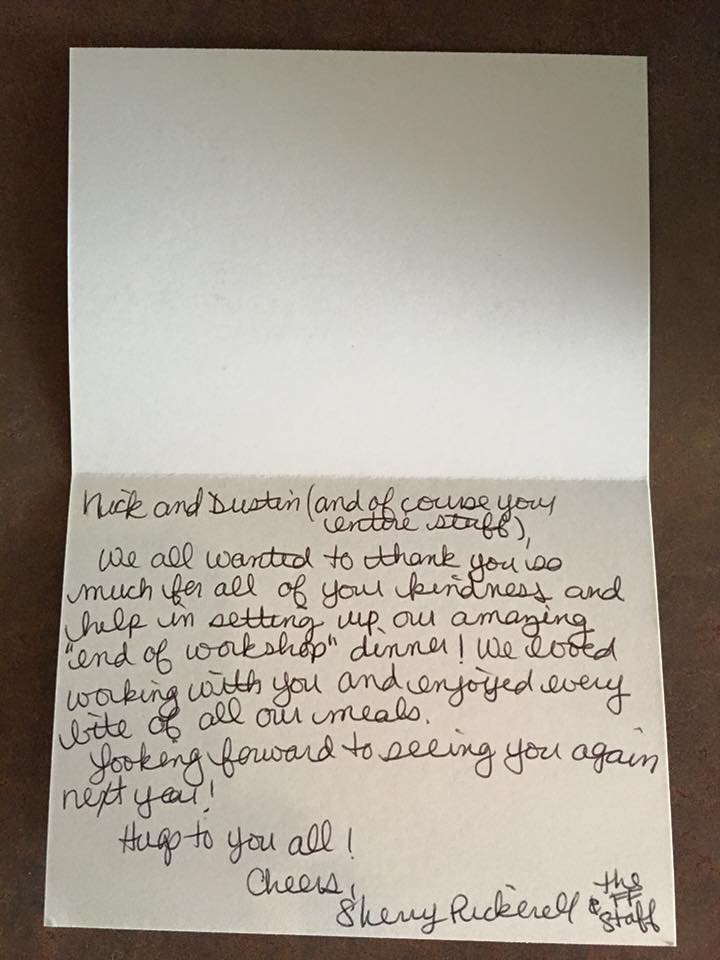 Nick and Dustin (and of course your
entire staff),
We all wanted to thank you so
much for all of your kindness and
help in setting up our amazing
"end of workshop" dinner! We loved
working with you and enjoyed every
bite of all our meals.
Looking forward to seeing you again
next year!
Hugs to you all!
Cheers,
Sherry Pickerell & the
FF
Staff